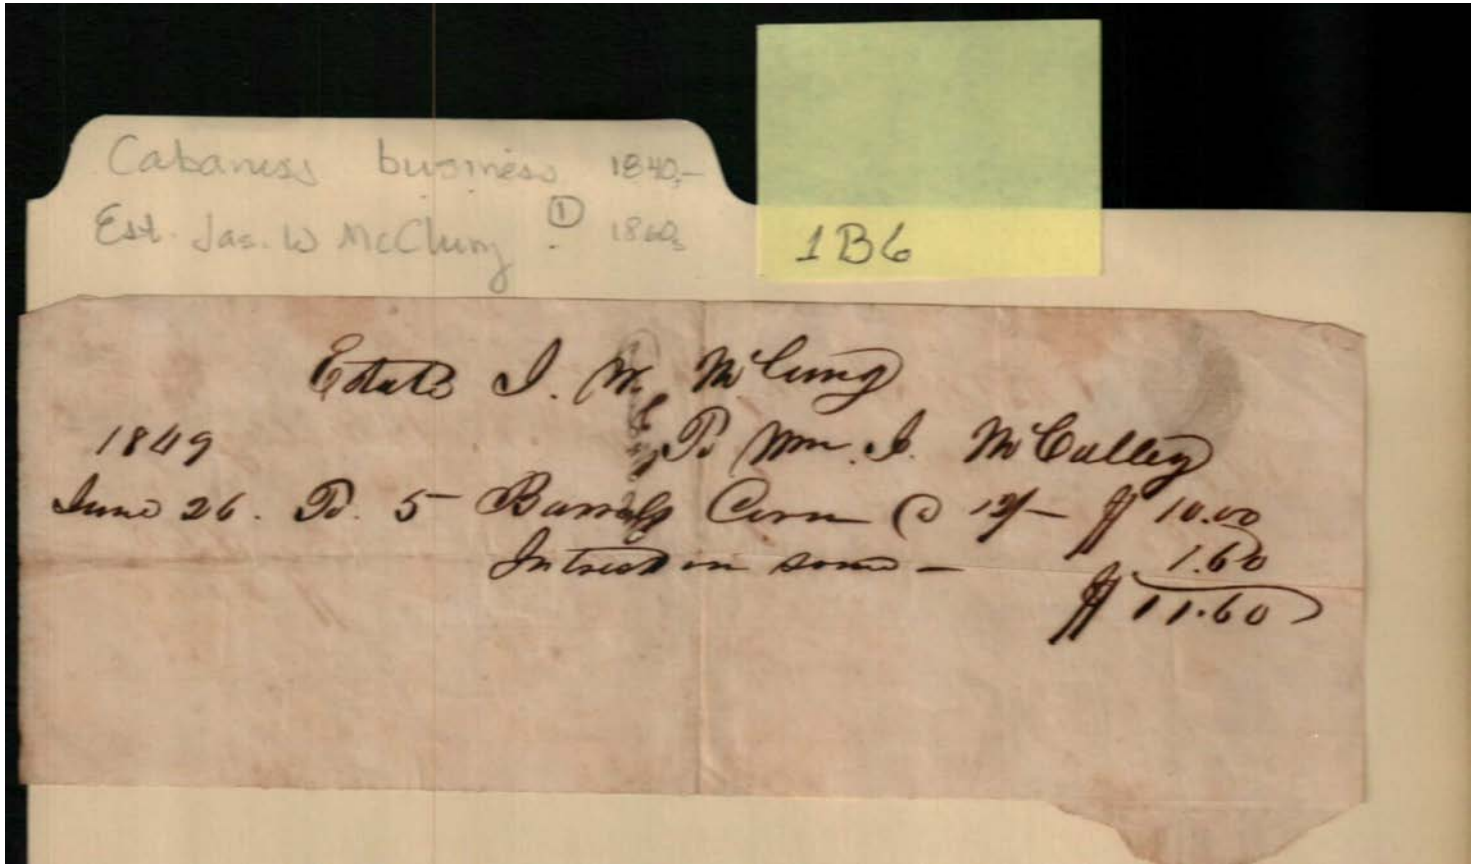 Cabaness business 1840,-
Est. Jas. W McClung ① 1860s
1B6
Estate J. W. McClung
To Wm. J. McCalley
1849
June 26. To. 5 Barrels Corn @ 12/- $10.00
Intrest on same - 1.60
$11.60